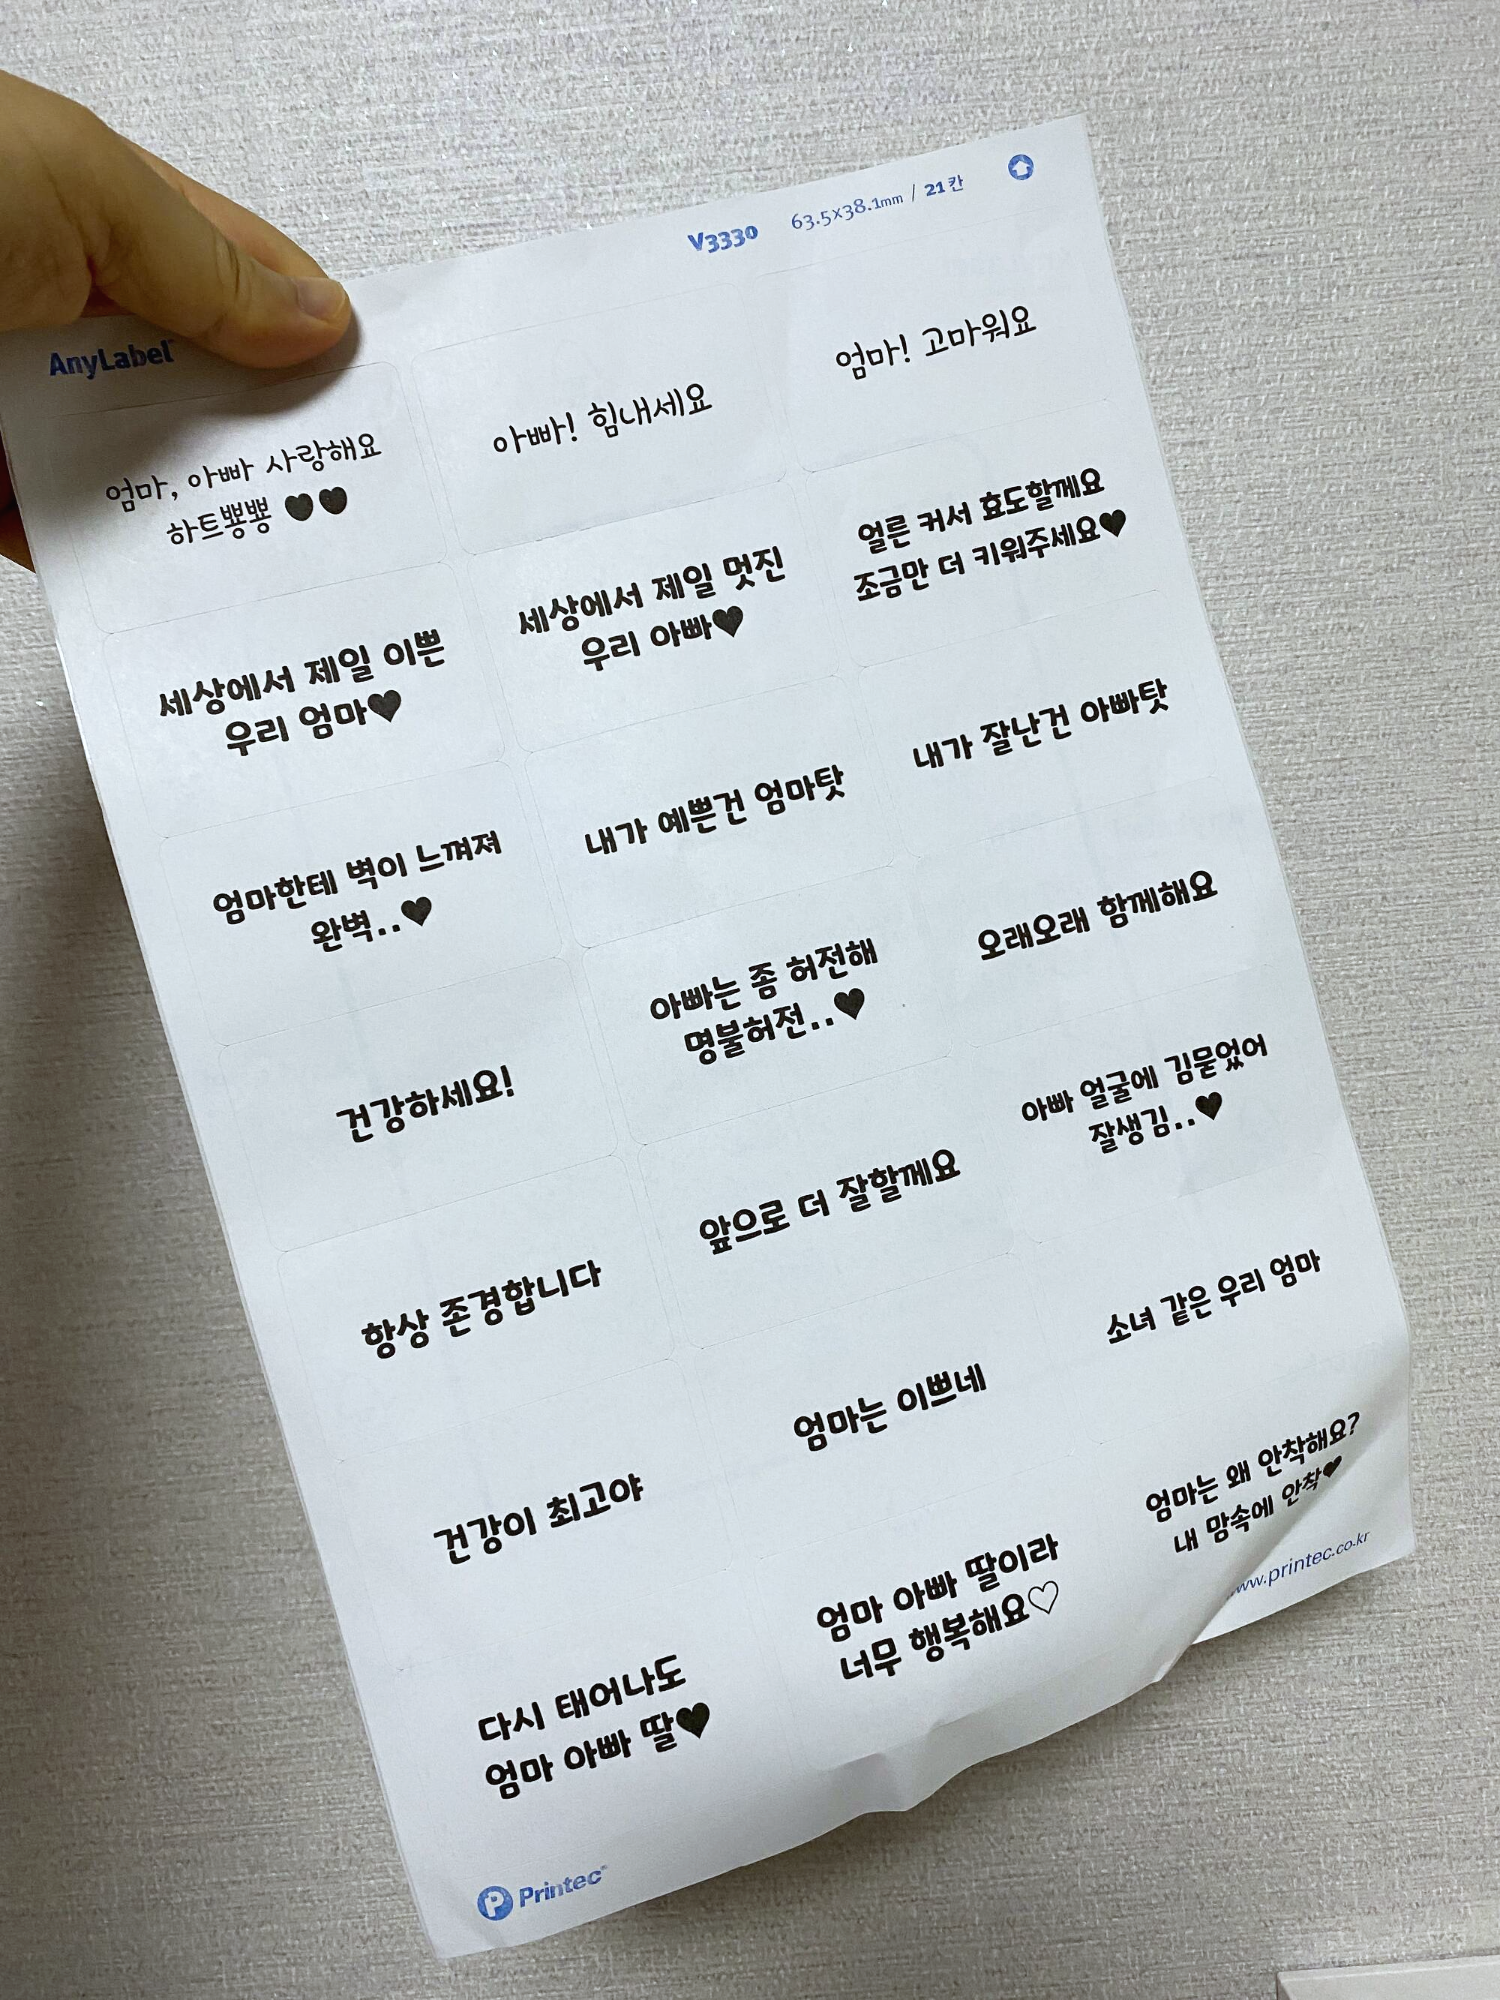 AnyLabel
V3330 63.5x38.1mm / 21칸
엄마, 아빠 사랑해요
하트뿅뿅 ♥♥
아빠! 힘내세요
엄마! 고마워요
세상에서 제일 이쁜
우리 엄마♥
세상에서 제일 멋진
우리 아빠♥
얼른 커서 효도할께요
조금만 더 키워주세요♥
엄마한테 벽이 느껴져
완벽..♥
내가 예쁜건 엄마탓
내가 잘난건 아빠탓
건강하세요!
아빠는 좀 허전해
명불허전..♥
오래오래 함께해요
항상 존경합니다
앞으로 더 잘할께요
아빠 얼굴에 김묻었어
잘생김..♥
건강이 최고야
엄마는 이쁘네
소녀 같은 우리 엄마
다시 태어나도
엄마 아빠 딸♥
엄마 아빠 딸이라
너무 행복해요♡
엄마는 왜 안착해요?
내 맘속에 안착♥
Printec
www.printec.co.kr